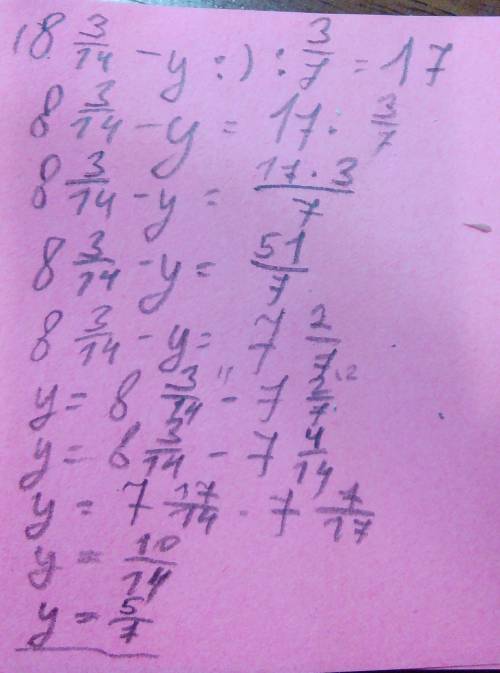 (8 3/14 - y :) : 3/7 = 17
8 3/14 - y = 17 · 3/7
8 3/14 - y = 17 · 3/7
8 3/14 - y = 51/7
8 3/14 - y = 7 2/7
y = 8 3/14 - 7 2/7
y = 8 3/14 - 7 4/14
y = 7 17/14 - 7 7/17
y = 10/14
y = 5/7